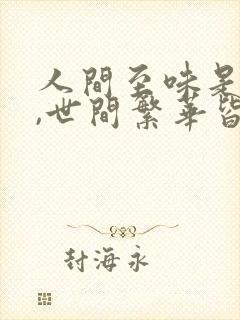 人間至味是
,世間繁華皆
封海永